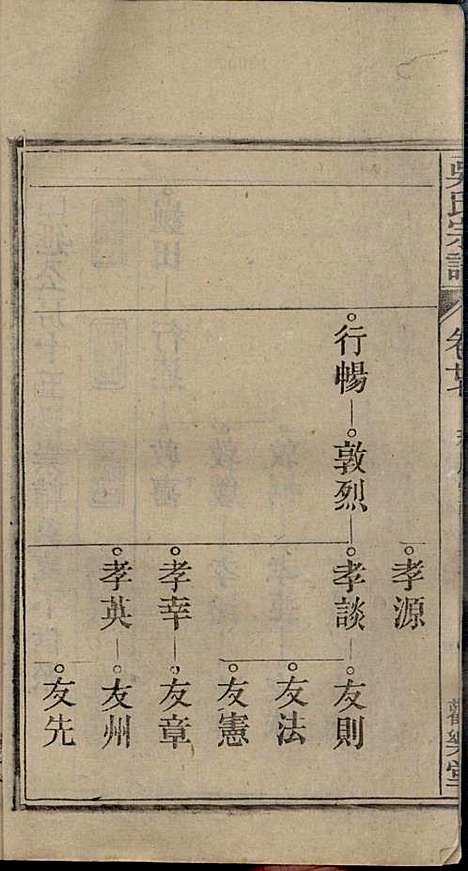 吳氏宗譜
卷
孝源
行暢
敦烈
孝談
友則
友法
友憲
孝幸
友章
孝英
友州
友先